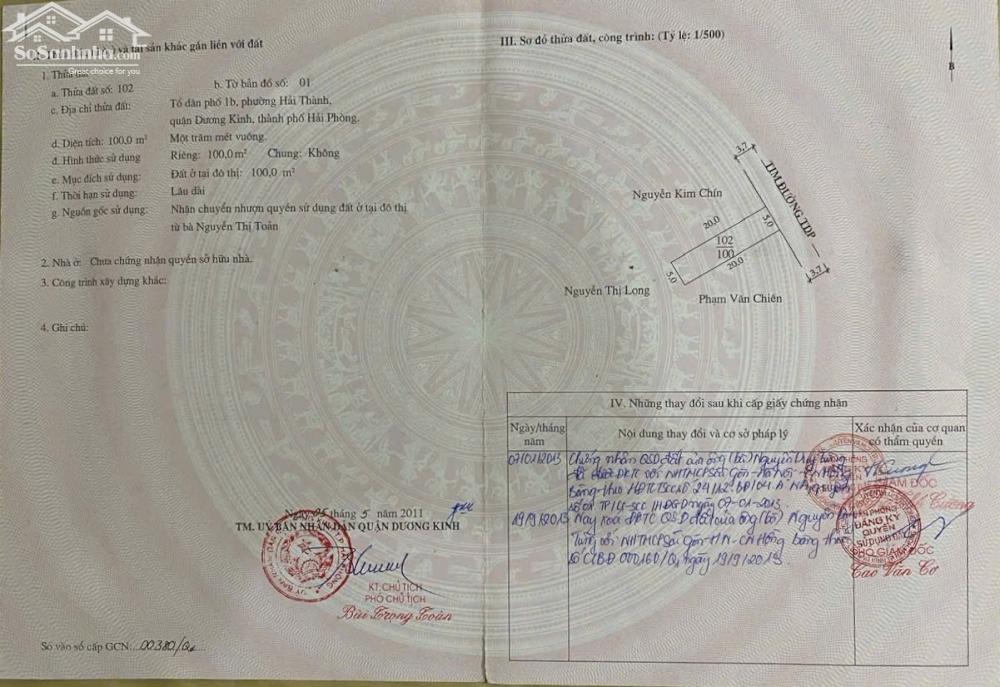 SoSanhnha.com
Great choice for you
) và tài sản khác gắn liền với đất
1. Thửa đất
a. Thửa đất số: 102 b. Tờ bản đồ số: 01
c. Địa chỉ thửa đất: Tổ dân phố 1b, phường Hải Thành,
quận Dương Kinh, thành phố Hải Phòng.
d. Diện tích: 100,0 m² Một trăm mét vuông.
đ. Hình thức sử dụng Riêng: 100,0 m² Chung: Không
e. Mục đích sử dụng: Đất ở tại đô thị: 100,0 m²
f. Thời hạn sử dụng: Lâu dài
g. Nguồn gốc sử dụng: Nhận chuyển nhượng quyền sử dụng đất ở tại đô thị
từ bà Nguyễn Thị Toàn
2. Nhà ở: Chưa chứng nhận quyền sở hữu nhà.
3. Công trình xây dựng khác:
4. Ghi chú:
Ngày 05 tháng 5 năm 2011
TM. UỶ BAN NHÂN DÂN QUẬN DƯƠNG KINH
KT. CHỦ TỊCH
PHÓ CHỦ TỊCH
Bùi Trọng Toàn
Số vào sổ cấp GCN: 00380/
III. Sơ đồ thửa đất, công trình: (Tỷ lệ: 1/500)
B
3,7
TIM ĐƯỜNG TDP
Nguyễn Kim Chín
20.0
5,0
102
100
20.0
5.0
3,7
Nguyễn Thị Long
Phạm Văn Chiên
IV. Những thay đổi sau khi cấp giấy chứng nhận
Ngày/tháng năm
Nội dung thay đổi và cơ sở pháp lý
Xác nhận của cơ quan có thẩm quyền
07/01/2013 Chứng nhận QSD đất của ông (bà) Nguyễn Huy Tùng
với NHTMCP Sài Gòn - Hà Nội - CN Hồng
Bàng theo
ngày 07-01-2013
19/9/2013 Nay xoá QSD đất của ông (bà) Nguyễn Huy
Tùng với NHTMCP Sài Gòn - HN - CN Hồng bàng theo
số ngày 19/9/2013.
GIÁM ĐỐC
Cường
VĂN PHÒNG
ĐĂNG KÝ
QUYỀN
SỬ DỤNG ĐẤT
PHÓ GIÁM ĐỐC
Cao Văn Cơ